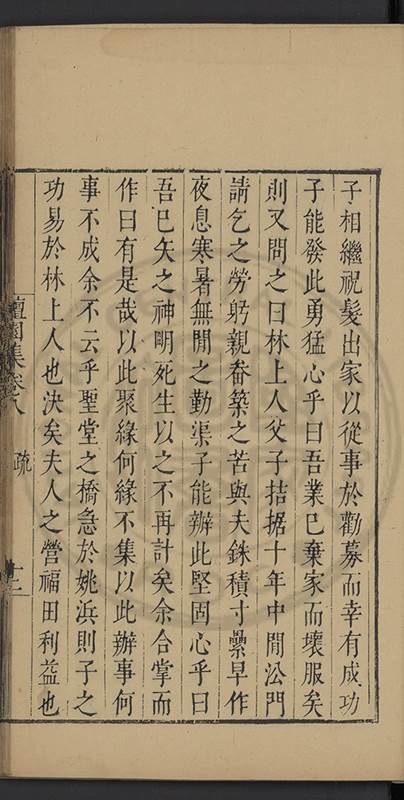 子相繼祝髮出家以從事於勸募而幸有成功
子能發此勇猛心乎曰吾業已棄家而壞服矣
則又問之曰林上人父子拮据十年中間公門
請乞之勞躬親畚築之苦與夫銖積寸纍早作
夜息寒暑無間之勤渠子能辦此堅固心乎曰
吾已矢之神明死生以之不再計矣余合掌而
作曰有是哉以此聚緣何緣不集以此辦事何
事不成余不云乎聖堂之橋急於姚浜則子之
功易於林上人也決矣夫人之營福田利益也
檀園集卷八
疏
十二